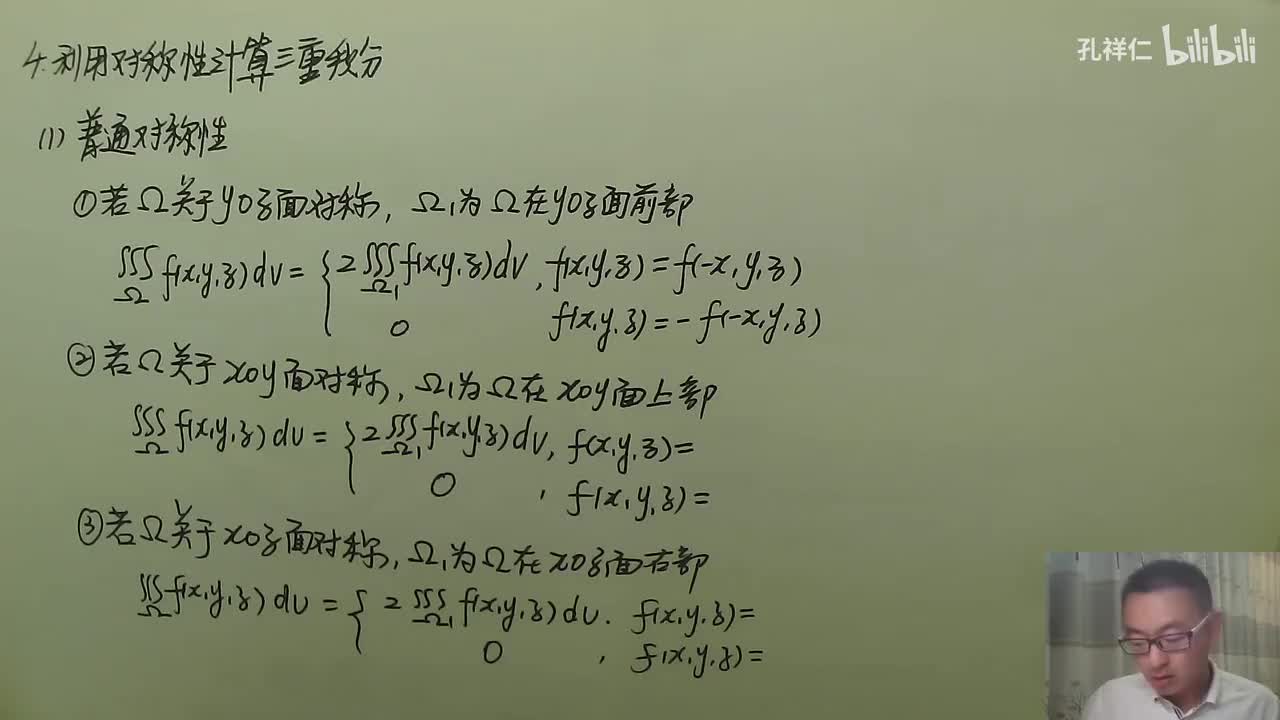 孔祥仁 bilibili
4.利用对称性计算三重积分
(1) 普通对称性
①若Ω关于yoz面对称, Ω₁为Ω在yoz面前部
∭_Ω f(x,y,z)dv = { 2∭_Ω₁ f(x,y,z)dv, f(x,y,z)=f(-x,y,z)
0 f(x,y,z)=-f(-x,y,z)
②若Ω关于xoy面对称, Ω₁为Ω在xoy面上部
∭_Ω f(x,y,z)dv = { 2∭_Ω₁ f(x,y,z)dv, f(x,y,z)=
0 , f(x,y,z)=
③若Ω关于xoz面对称, Ω₁为Ω在xoz面右部
∭_Ω f(x,y,z)dv = { 2∭_Ω₁ f(x,y,z)dv. f(x,y,z)=
0 , f(x,y,z)=